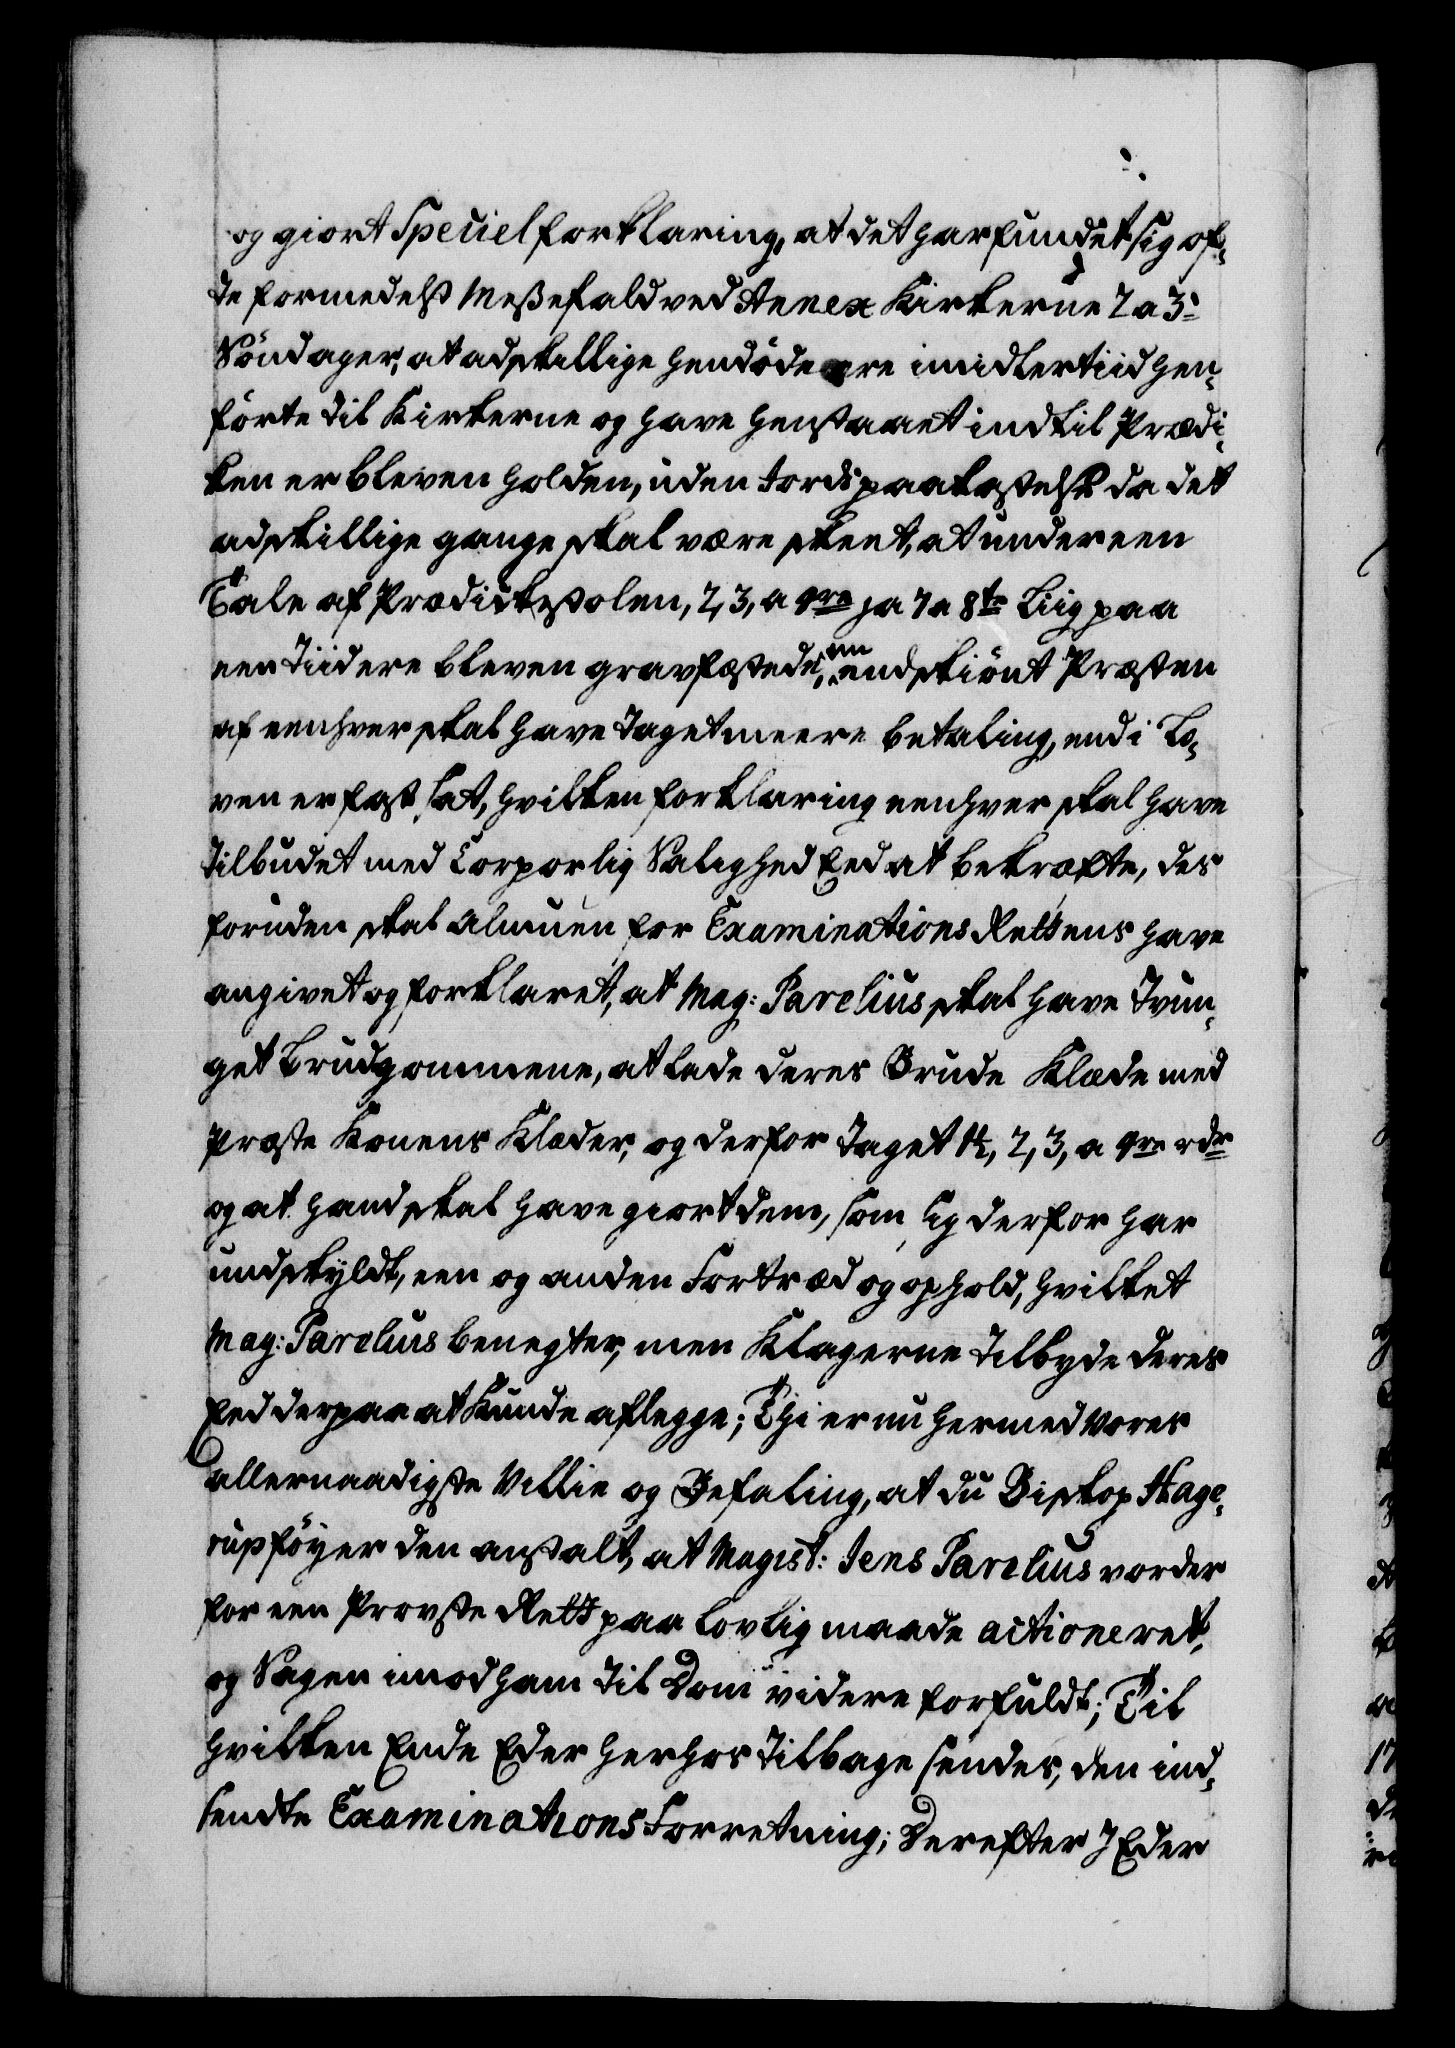 og giort Speciel forklaring, at det har fundet sig of-
te formedelst Messefald ved Annex Kirkerne 2 a 3
Söndager, at adskillige hendöde ere imidlertiid hen-
förte til Kirkerne og have henstaaet indtil Prædi-
ken er bleven holden, uden Jords paakastelse da det
adskillige gange skal være skeet, at under een
Tale af Prædickestolen, 2, 3, a 4re ja 7 a 8te Liig paa
een Tiid ere bleven gravfæstede, endskiönt Præsten
af eenhver skal have taget meere betaling, end i Lo-
ven er fast sat, hvilken forklaring eenhver skal have
tilbudet med Corporlig Saligheds Eed at bekræfte, des
foruden skal Almuen for Examinations Retten have
angivet og forklaret, at Mag: Parelius skal have tvun-
get Brudgommene, at lade deres Brude Klæde med
Præste Konens Klæder, og derfor taget 1½, 2, 3, a 4re rdr
og at hand skal have giort dem, som sig derfor har
undskyldt, een og anden Fortræd og ophold, hvilket
Mag: Parelius benegter, men Klagerne tilbyde deres
Eed derpaa at Kunde aflegge; Thi er nu hermed Vores
allernaadigste Villie og Befaling, at du Biskop Hage-
rup föyer den anstalt, at Magist: Jens Parelius vorder
for een Provste Rett paa lovlig maade actioneret,
og Sagen imod ham til Dom videre forfuldt; Til
hvilken Ende Eder herhos tilbage sendes, den ind-
sendte Examinations Forretning; Derefter I Eder